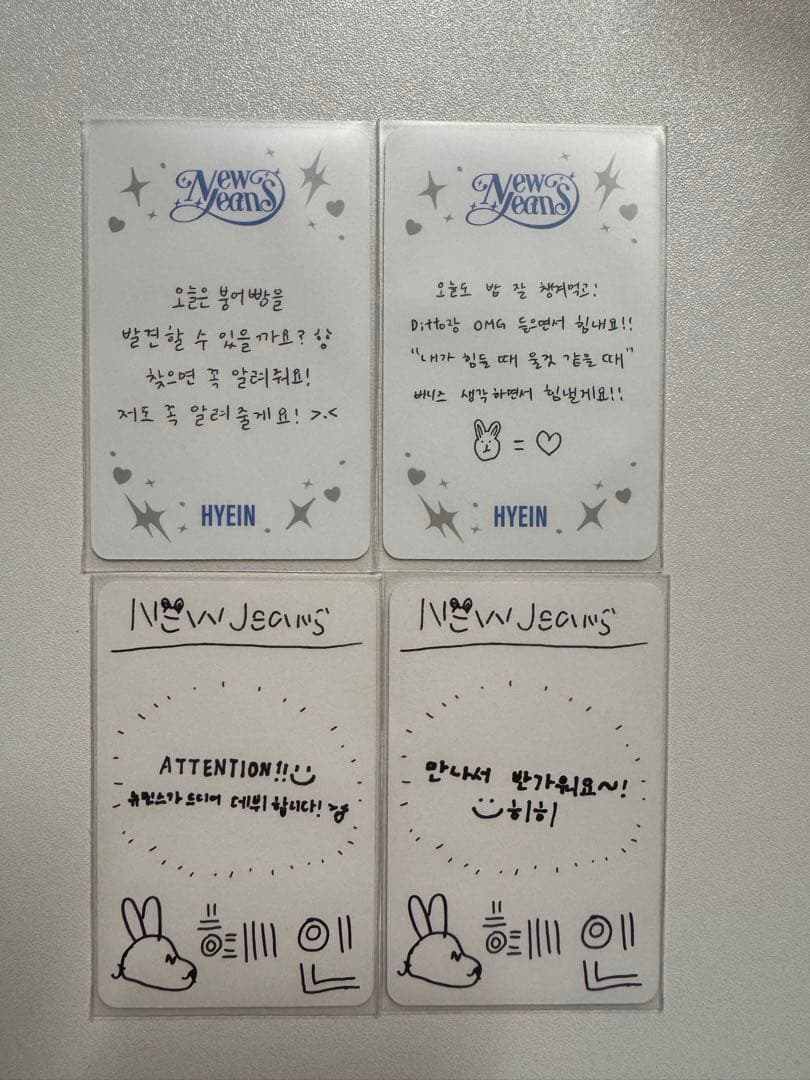 New
Jeans
오늘은 붕어빵을
발견할 수 있을까요?
찾으면 꼭 알려줘요!
저도 꼭 알려줄게요! >.<
HYEIN
New
Jeans
오늘도 밥 잘 챙겨먹고!
Ditto랑 OMG 들으면서 힘내요!!
"내가 힘들 때 울것 같을 때"
버니즈 생각하면서 힘낼게요!!
=
HYEIN
NEW Jeans
ATTENTION!!
뉴진스가 드디어 데뷔합니다!
혜인
NEW Jeans
만나서 반가워요~!
히히
혜인